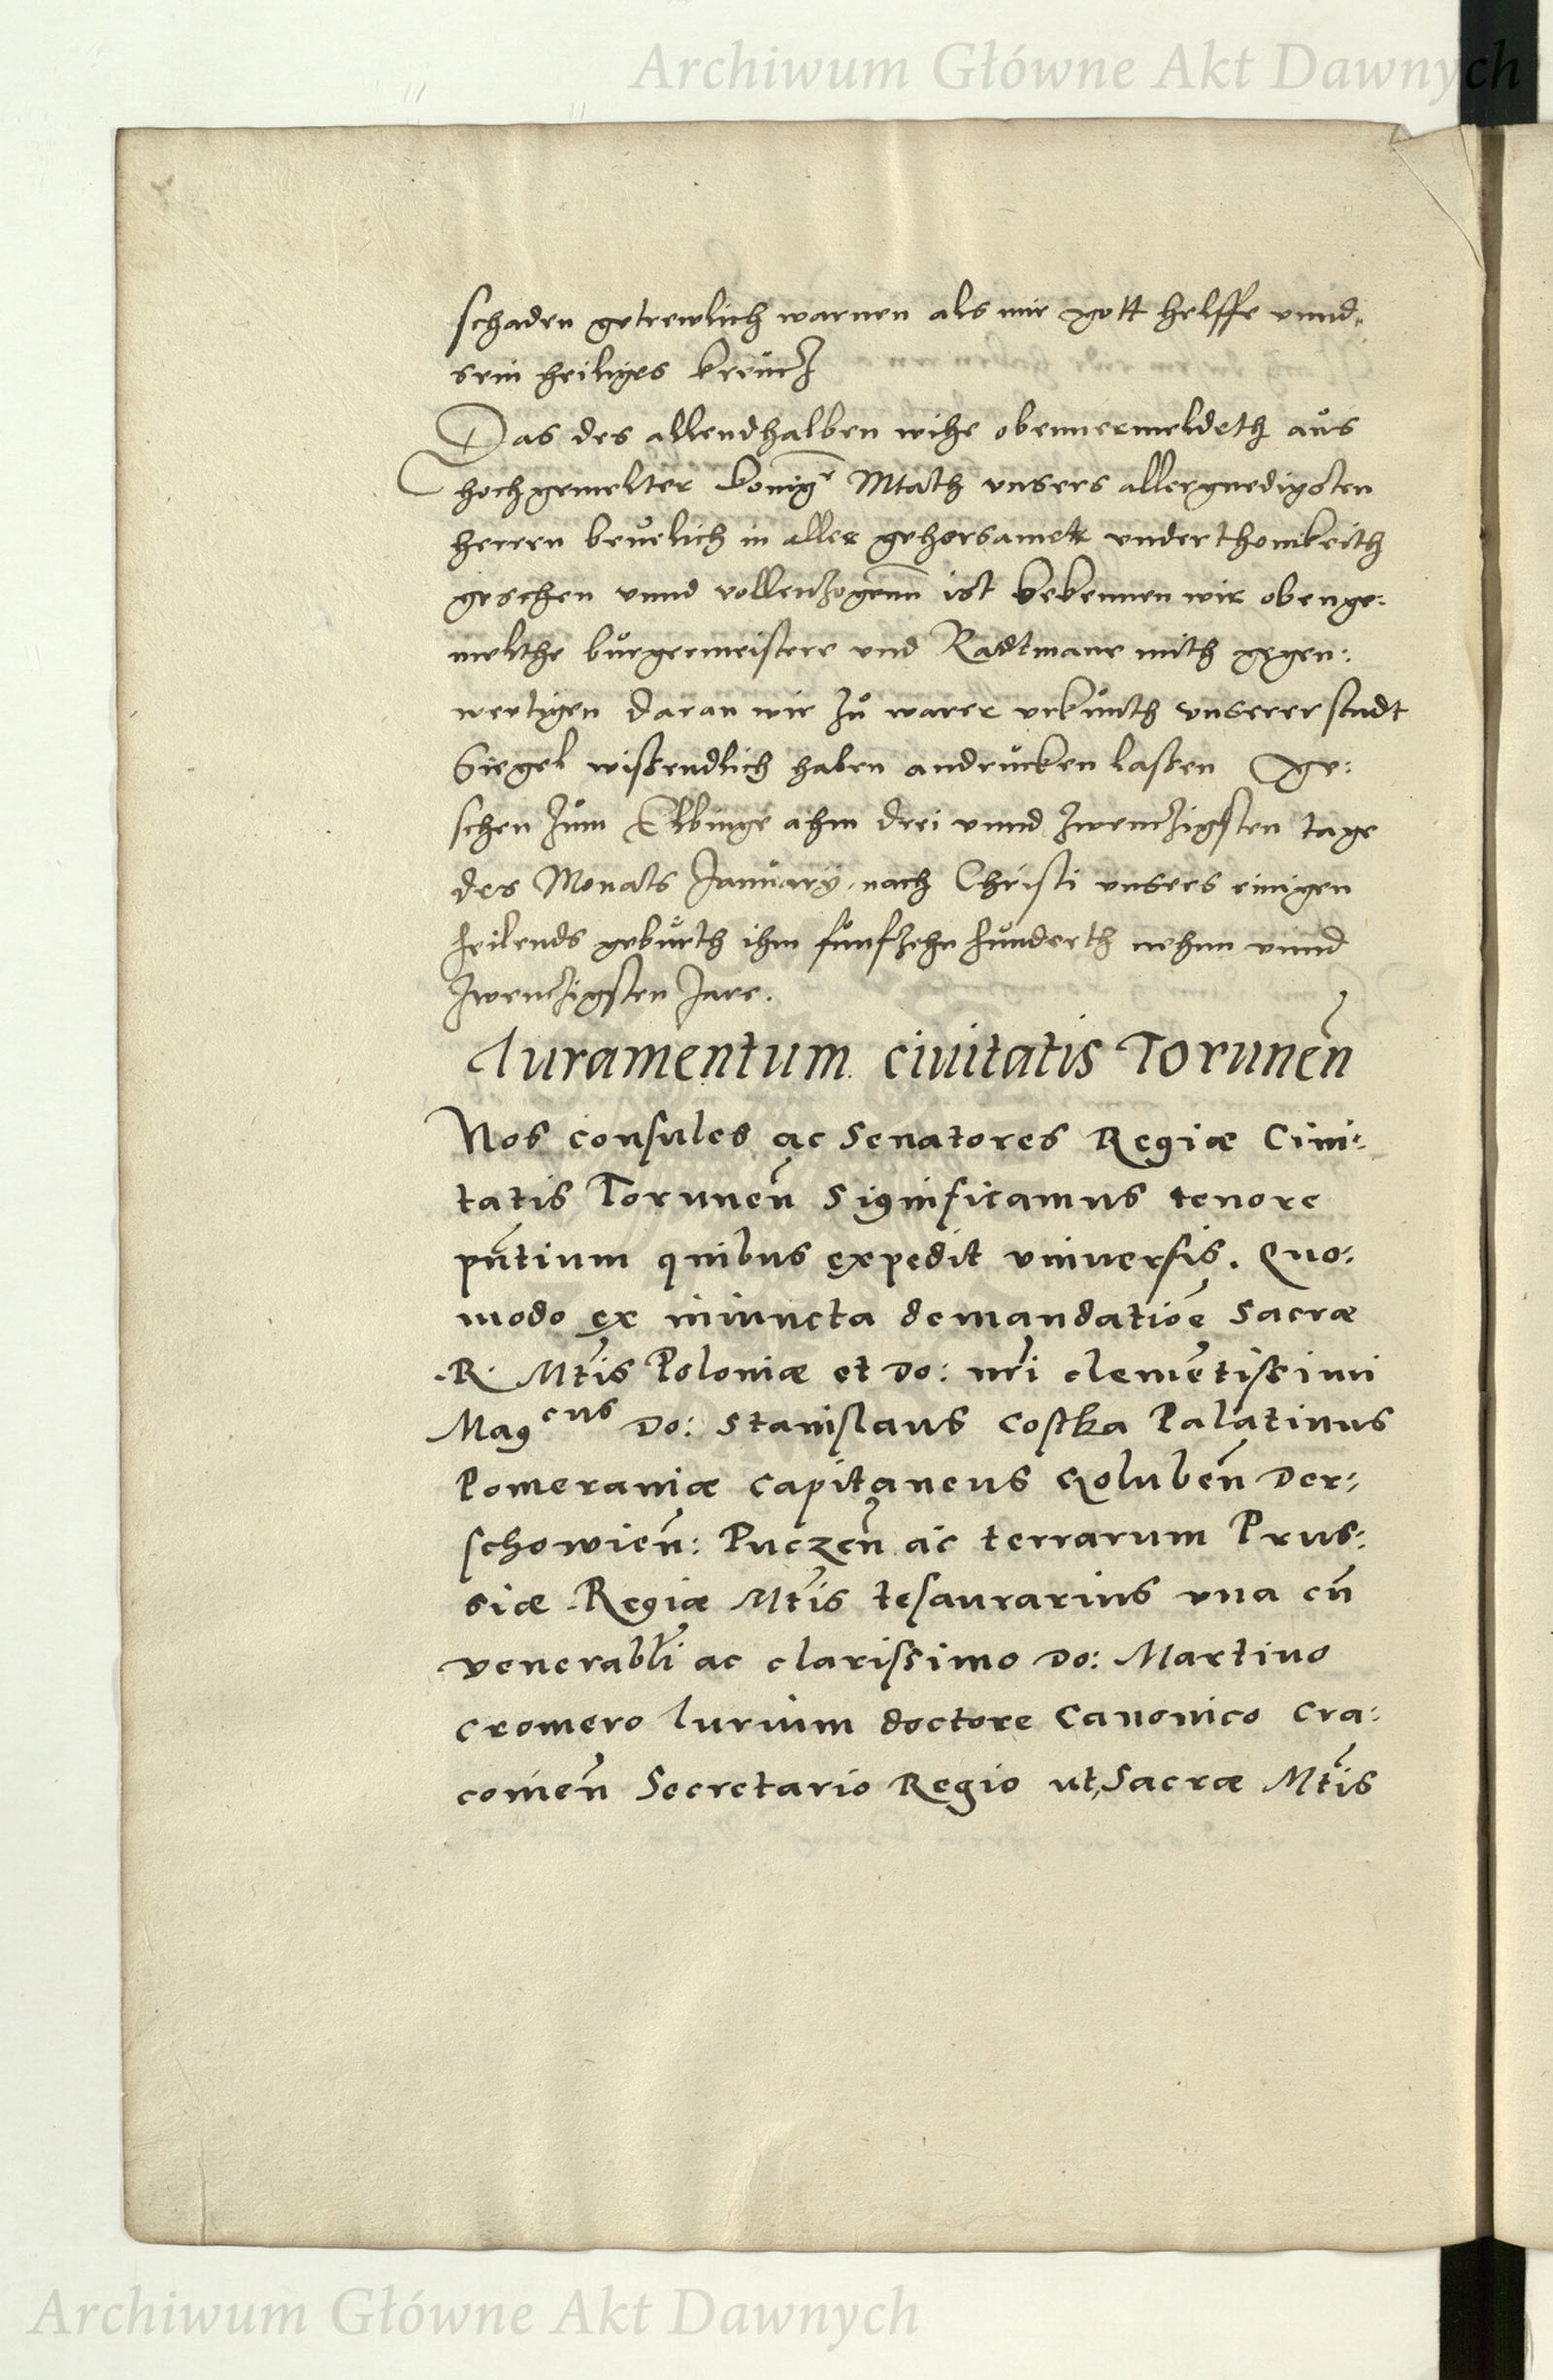 Archiwum Główne Akt Dawnych
schaden getrewlich warnen als mir gott helffe vnnd
sein heiliges kreutz
Das des allendhalben wihe obenuermeldeth aus
hochgemelter konigr Mtath vnsers allergnedigsten
herren beuelich in aller gehorsamer vnderthonikeith
geschen vnnd vollentzogenn ist bekennen wir obenge:
melthe burgermeistere vnd Radtmane mith gegen:
wertigen daran wir zu warer vrkunth vnserer stadt
Siegel wissendlich haben andrucken lassen Ge:
schen zum Elbinge ahm drei vnnd zwentzigsten tage
des Monats January, nach Christi vnsers einigen
heilends geburth ihm funfzehn hunderth nehun vnnd
zwentzigsten Jare.
Iuramentum ciuitatis Torunen̄
Nos consules ac Senatores Regiæ Ciui:
tatis Torunen̄ Significamus tenore
pn̄tium quibus expedit vniuersis. Quo:
modo ex iniuncta demandatiōe Sacræ
.R. Mtis Poloniæ et Do: nr̄i clemētissimi
Magcus Do: Stanislaus Costka Palatinus
Pomeraniæ capitaneus Goluben̄ Der:
schowien̄: Puczen̄ ac terrarum Prus:
siæ Regiæ Mtis tesaurarius vna cū
venerabli ac clarissimo Do: Martino
cromero Iurium doctore Canonico Cra:
couien̄ Secretario Regio ut, Sacræ Mtis
Archiwum Główne Akt Dawnych